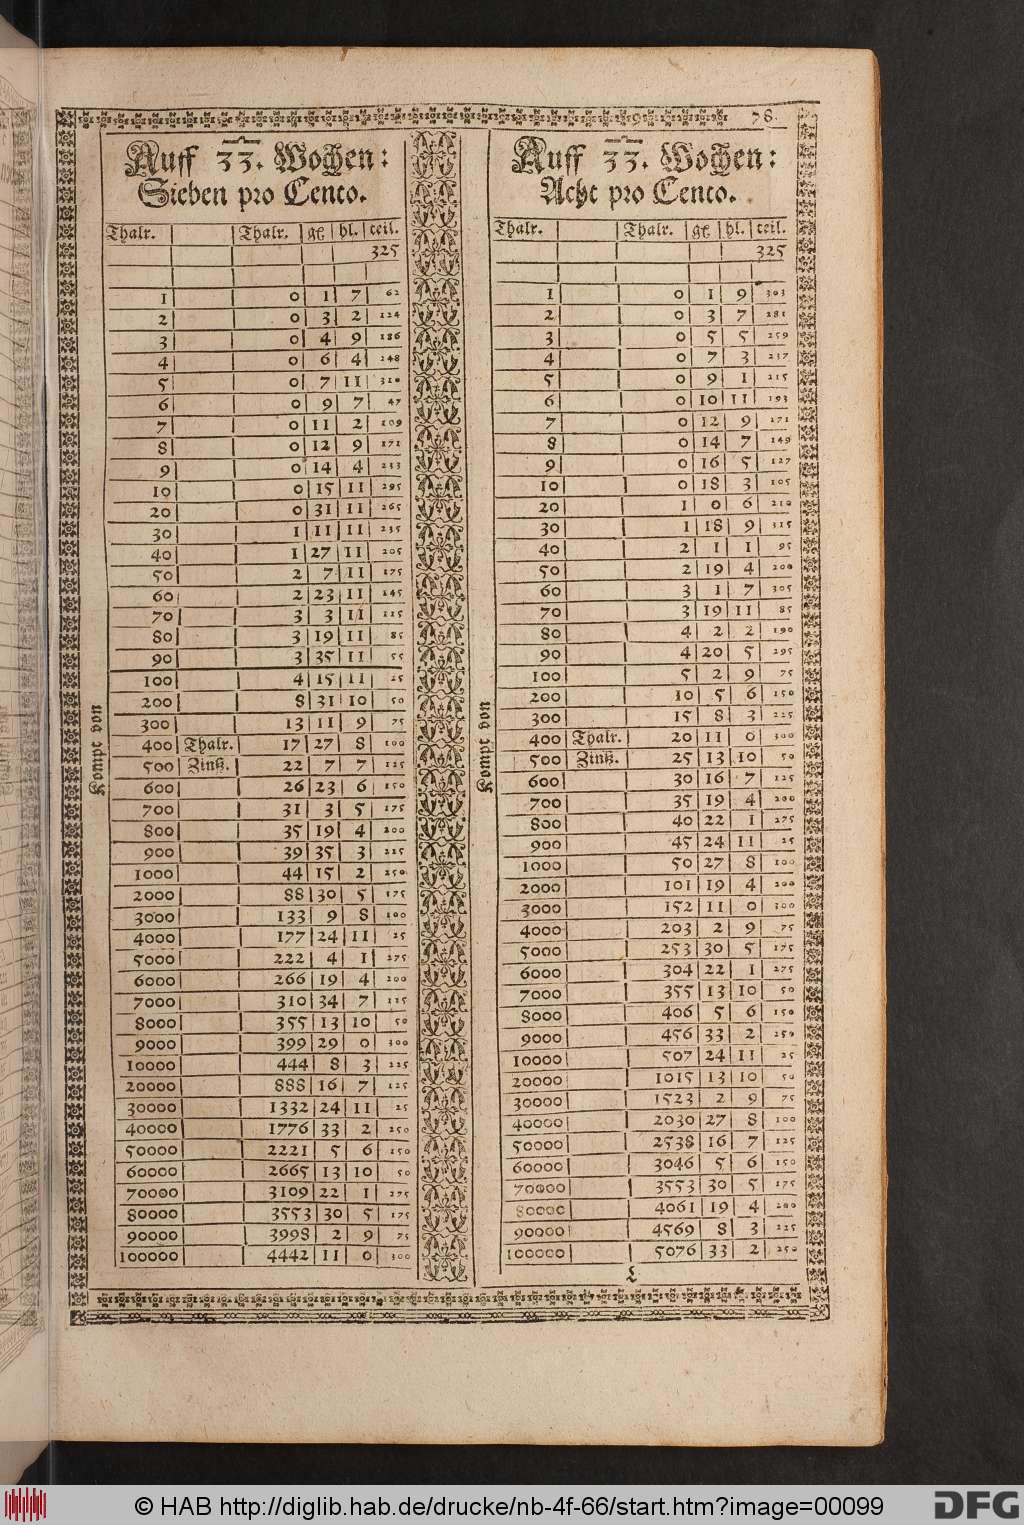 78.
Auff 33. Wochen:
Sieben pro Cento.
Thalr. Thalr. gℓ hl. teil.
325
1 0 1 7 62
2 0 3 2 124
3 0 4 9 186
4 0 6 4 248
5 0 7 11 310
6 0 9 7 47
7 0 11 2 109
8 0 12 9 171
9 0 14 4 233
10 0 15 11 295
20 0 31 11 265
30 1 11 11 235
40 1 27 11 205
50 2 7 11 175
60 2 23 11 145
70 3 3 11 115
80 3 19 11 85
90 3 35 11 55
100 4 15 11 25
200 8 31 10 50
300 13 11 9 75
400 Thalr. 17 27 8 100
500 Zinß. 22 7 7 125
600 26 23 6 150
700 31 3 5 175
800 35 19 4 200
900 39 35 3 225
1000 44 15 2 250
2000 88 30 5 175
3000 133 9 8 100
4000 177 24 11 25
5000 222 4 1 275
6000 266 19 4 200
7000 310 34 7 125
8000 355 13 10 50
9000 399 29 0 300
10000 444 8 3 225
20000 888 16 7 125
30000 1332 24 11 25
40000 1776 33 2 250
50000 2221 5 6 150
60000 2665 13 10 50
70000 3109 22 1 275
80000 3553 30 5 175
90000 3998 2 9 75
100000 4442 11 0 300
Kompt von
Auff 33. Wochen:
Acht pro Cento.
Thalr. Thalr. gℓ hl. teil.
325
1 0 1 9 303
2 0 3 7 281
3 0 5 5 259
4 0 7 3 237
5 0 9 1 215
6 0 10 11 193
7 0 12 9 171
8 0 14 7 149
9 0 16 5 127
10 0 18 3 105
20 1 0 6 210
30 1 18 9 315
40 2 1 1 95
50 2 19 4 200
60 3 1 7 305
70 3 19 11 85
80 4 2 2 190
90 4 20 5 295
100 5 2 9 75
200 10 5 6 150
300 15 8 3 225
400 Thalr. 20 11 0 300
500 Zinß. 25 13 10 50
600 30 16 7 125
700 35 19 4 200
800 40 22 1 275
900 45 24 11 25
1000 50 27 8 100
2000 101 19 4 200
3000 152 11 0 300
4000 203 2 9 75
5000 253 30 5 175
6000 304 22 1 275
7000 355 13 10 50
8000 406 5 6 150
9000 456 33 2 250
10000 507 24 11 25
20000 1015 13 10 50
30000 1523 2 9 75
40000 2030 27 8 100
50000 2538 16 7 125
60000 3046 5 6 150
70000 3553 30 5 175
80000 4061 19 4 200
90000 4569 8 3 225
100000 5076 33 2 250
Kompt von
L
© HAB http://diglib.hab.de/drucke/nb-4f-66/start.htm?image=00099
DFG